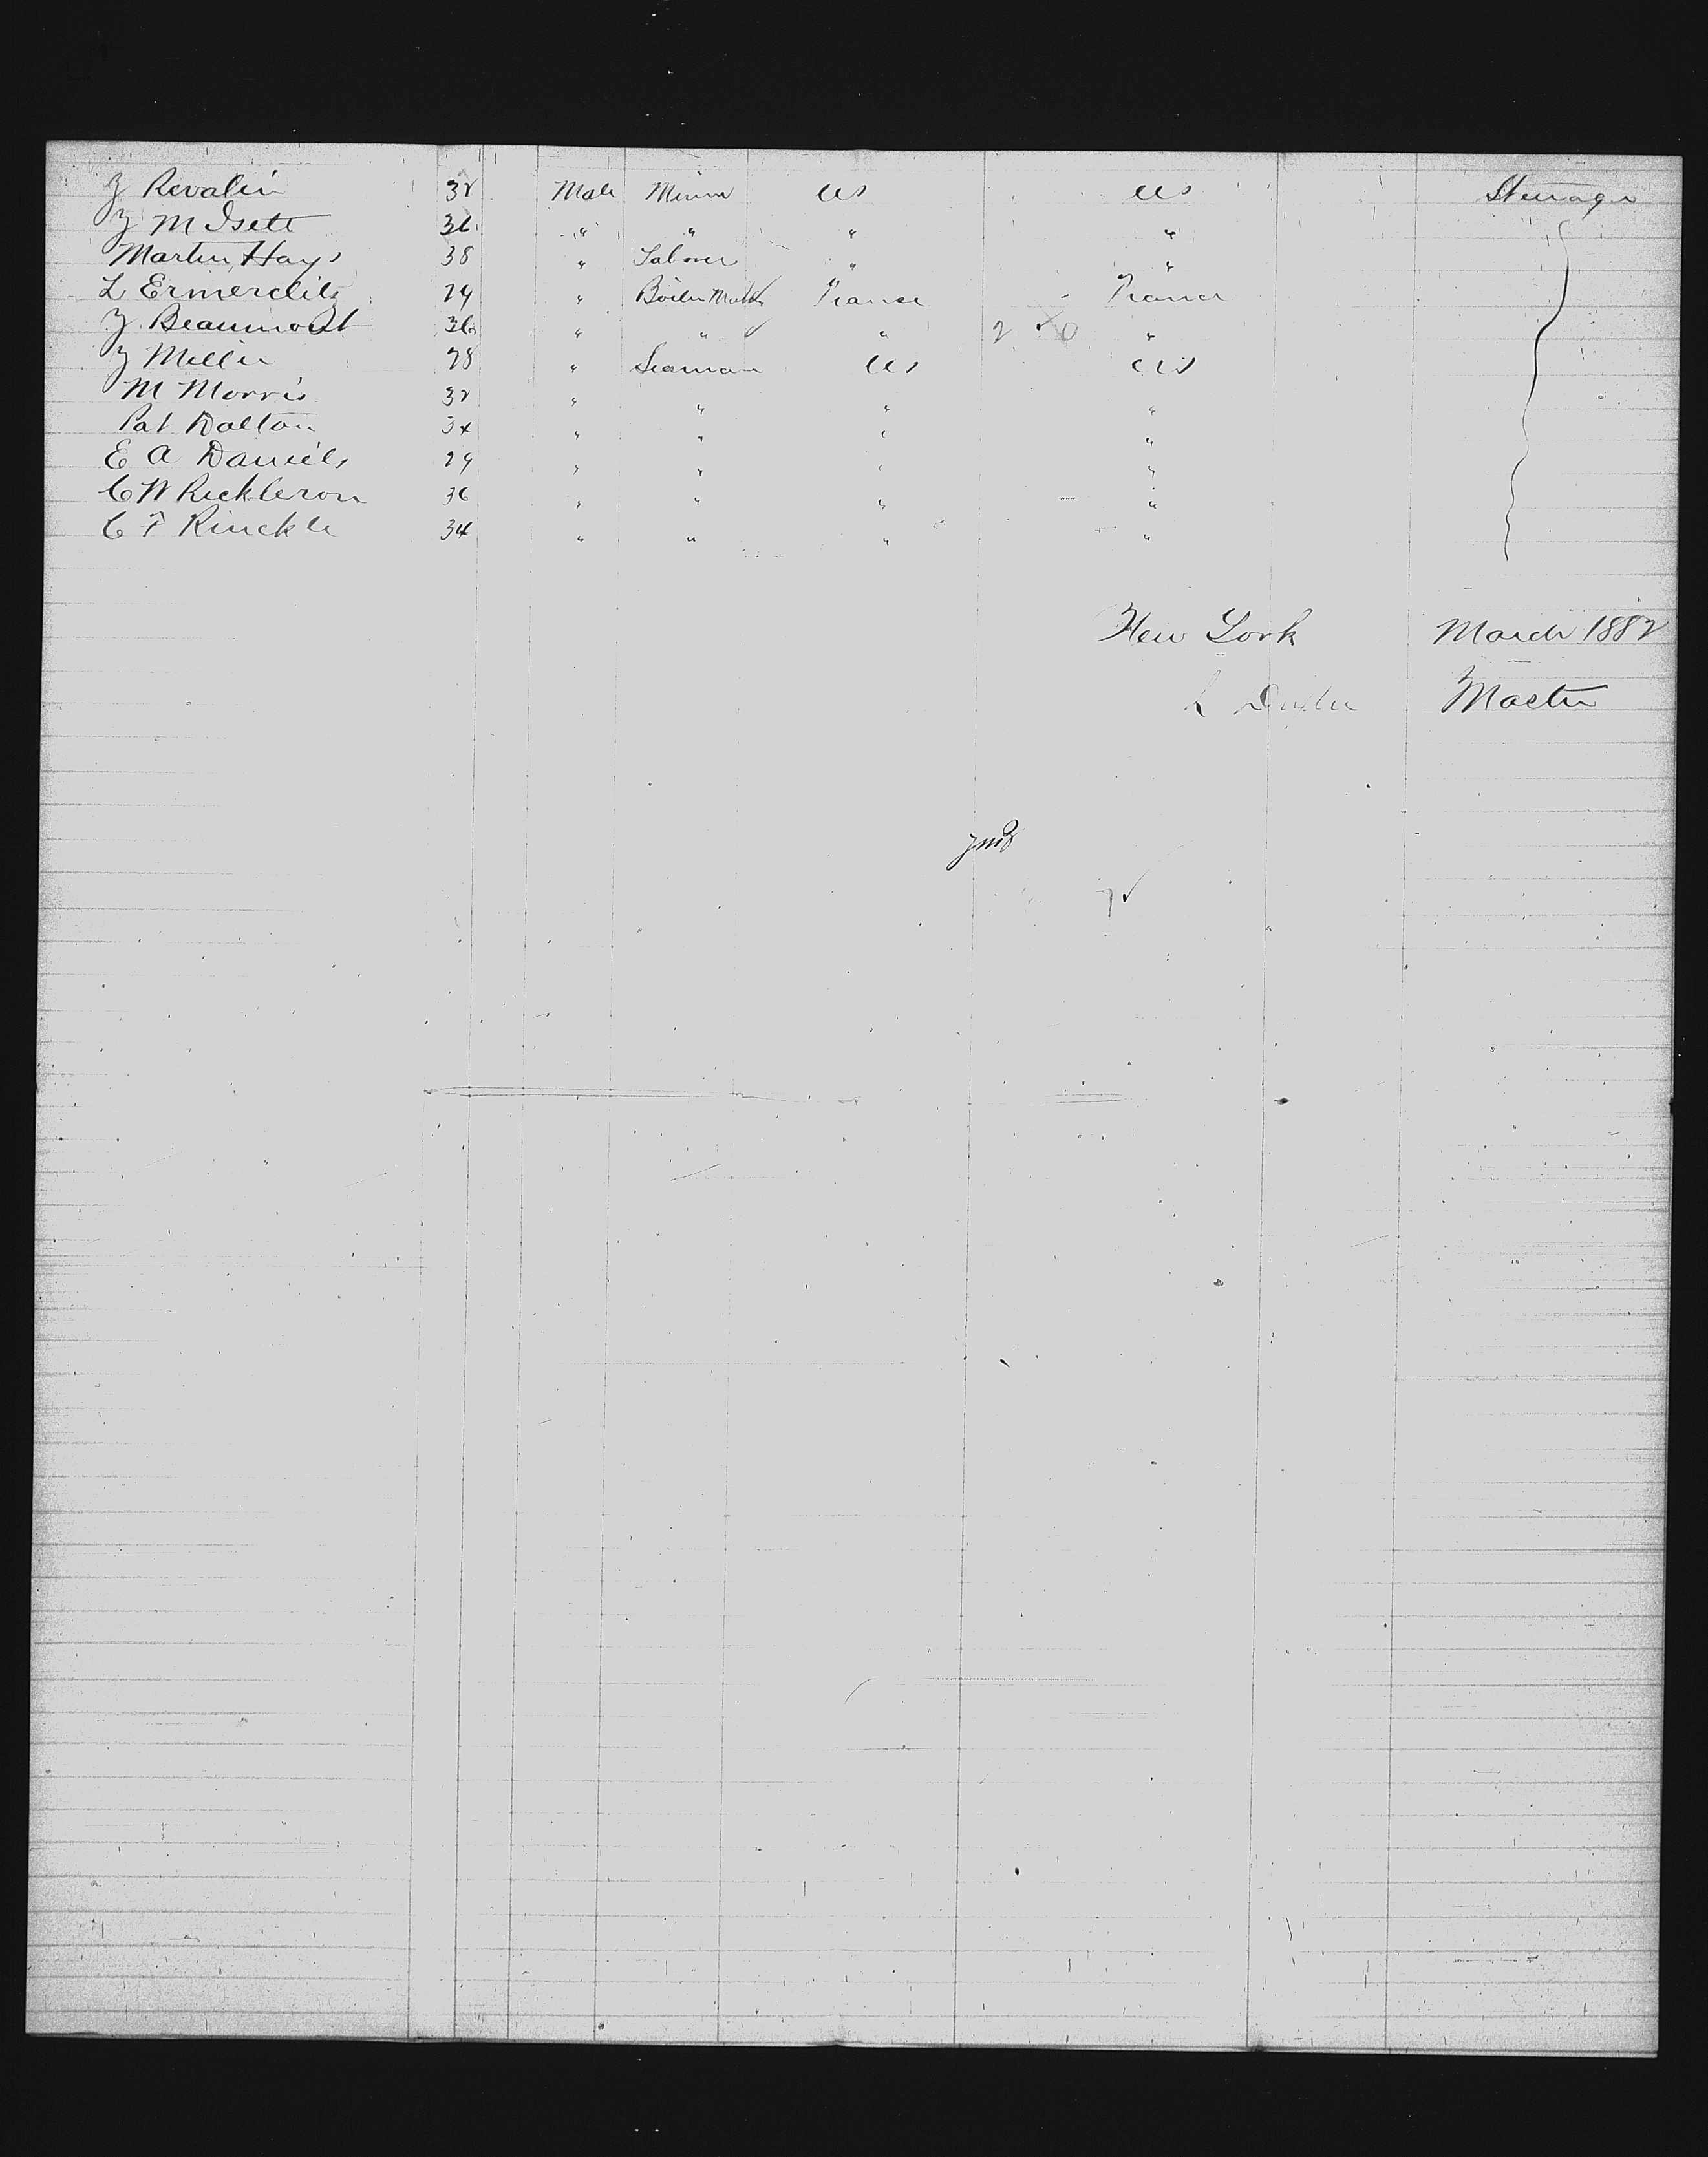 J Revalin 32 Male Miner US US Steerage
J M Isett 36 " " " "
Martin Hays 38 " Laborer " "
L Ermerdils 24 " Boiler Maker France France
J Beaumont 36 " " " "
J Miller 28 " Seaman US US
M Morris 32 " " " "
Pat Dalton 34 " " " "
E A Daniels 29 " " " "
C W Rickleron 36 " " " "
C F Rinckle 34 " " " "
New York March 1882
L Master